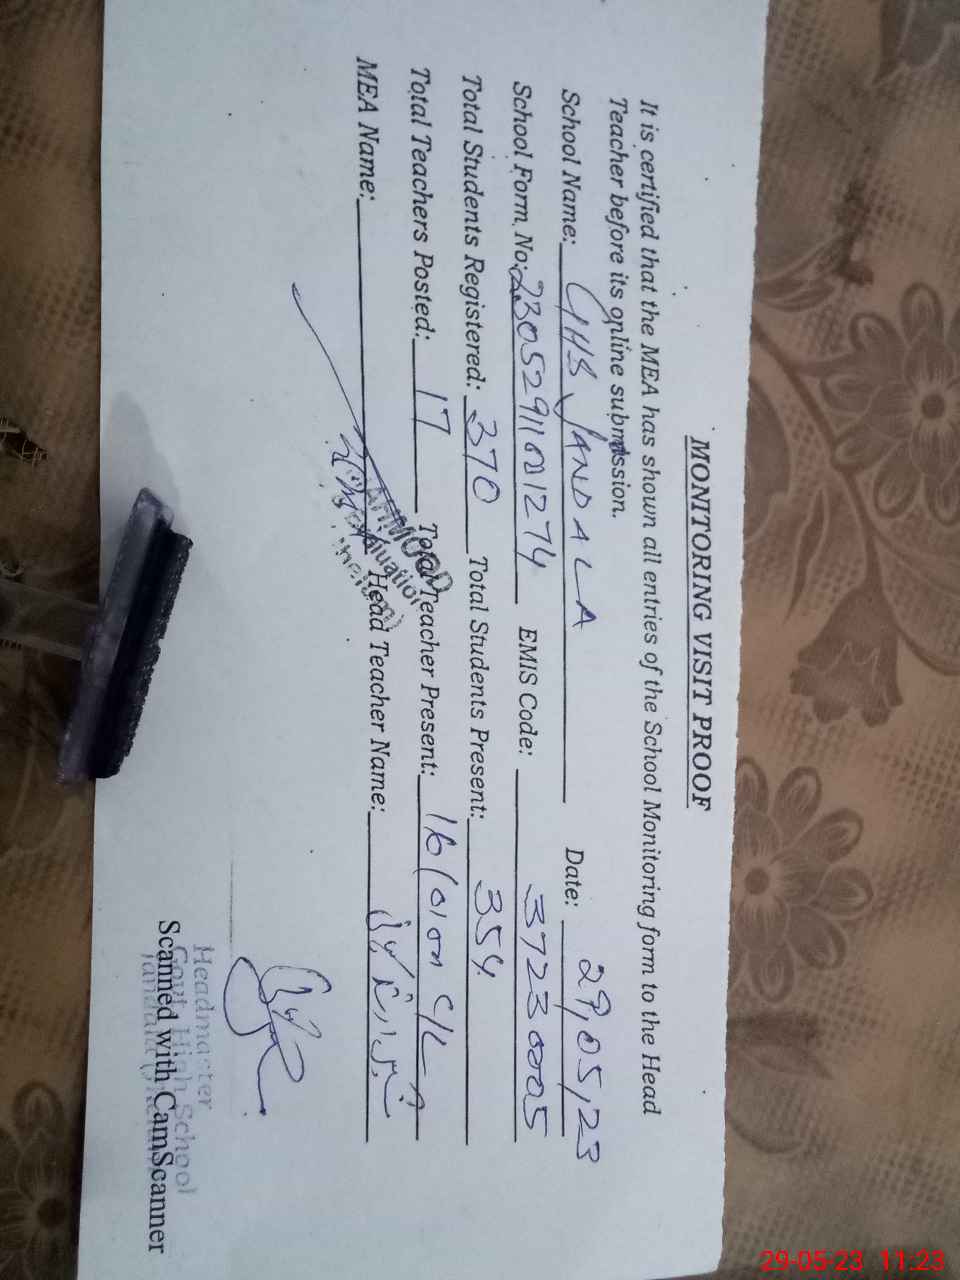 MONITORING VISIT PROOF
It is certified that the MEA has shown all entries of the School Monitoring form to the Head
Teacher before its online submission.
School Name: GHS JANDALA Date: 29,05,23
School Form, No: 23052911001274 EMIS Code: 37230005
Total Students Registered: 370 Total Students Present: 354
Total Teachers Posted: 17 Total Teacher Present: 16 (01 on C/L)
MEA Name: Head Teacher Name:
AHMOOD
Evaluation
Jhelum)
Headmaster
Govt High School
Scanned with CamScanner
29-05-23 11:23